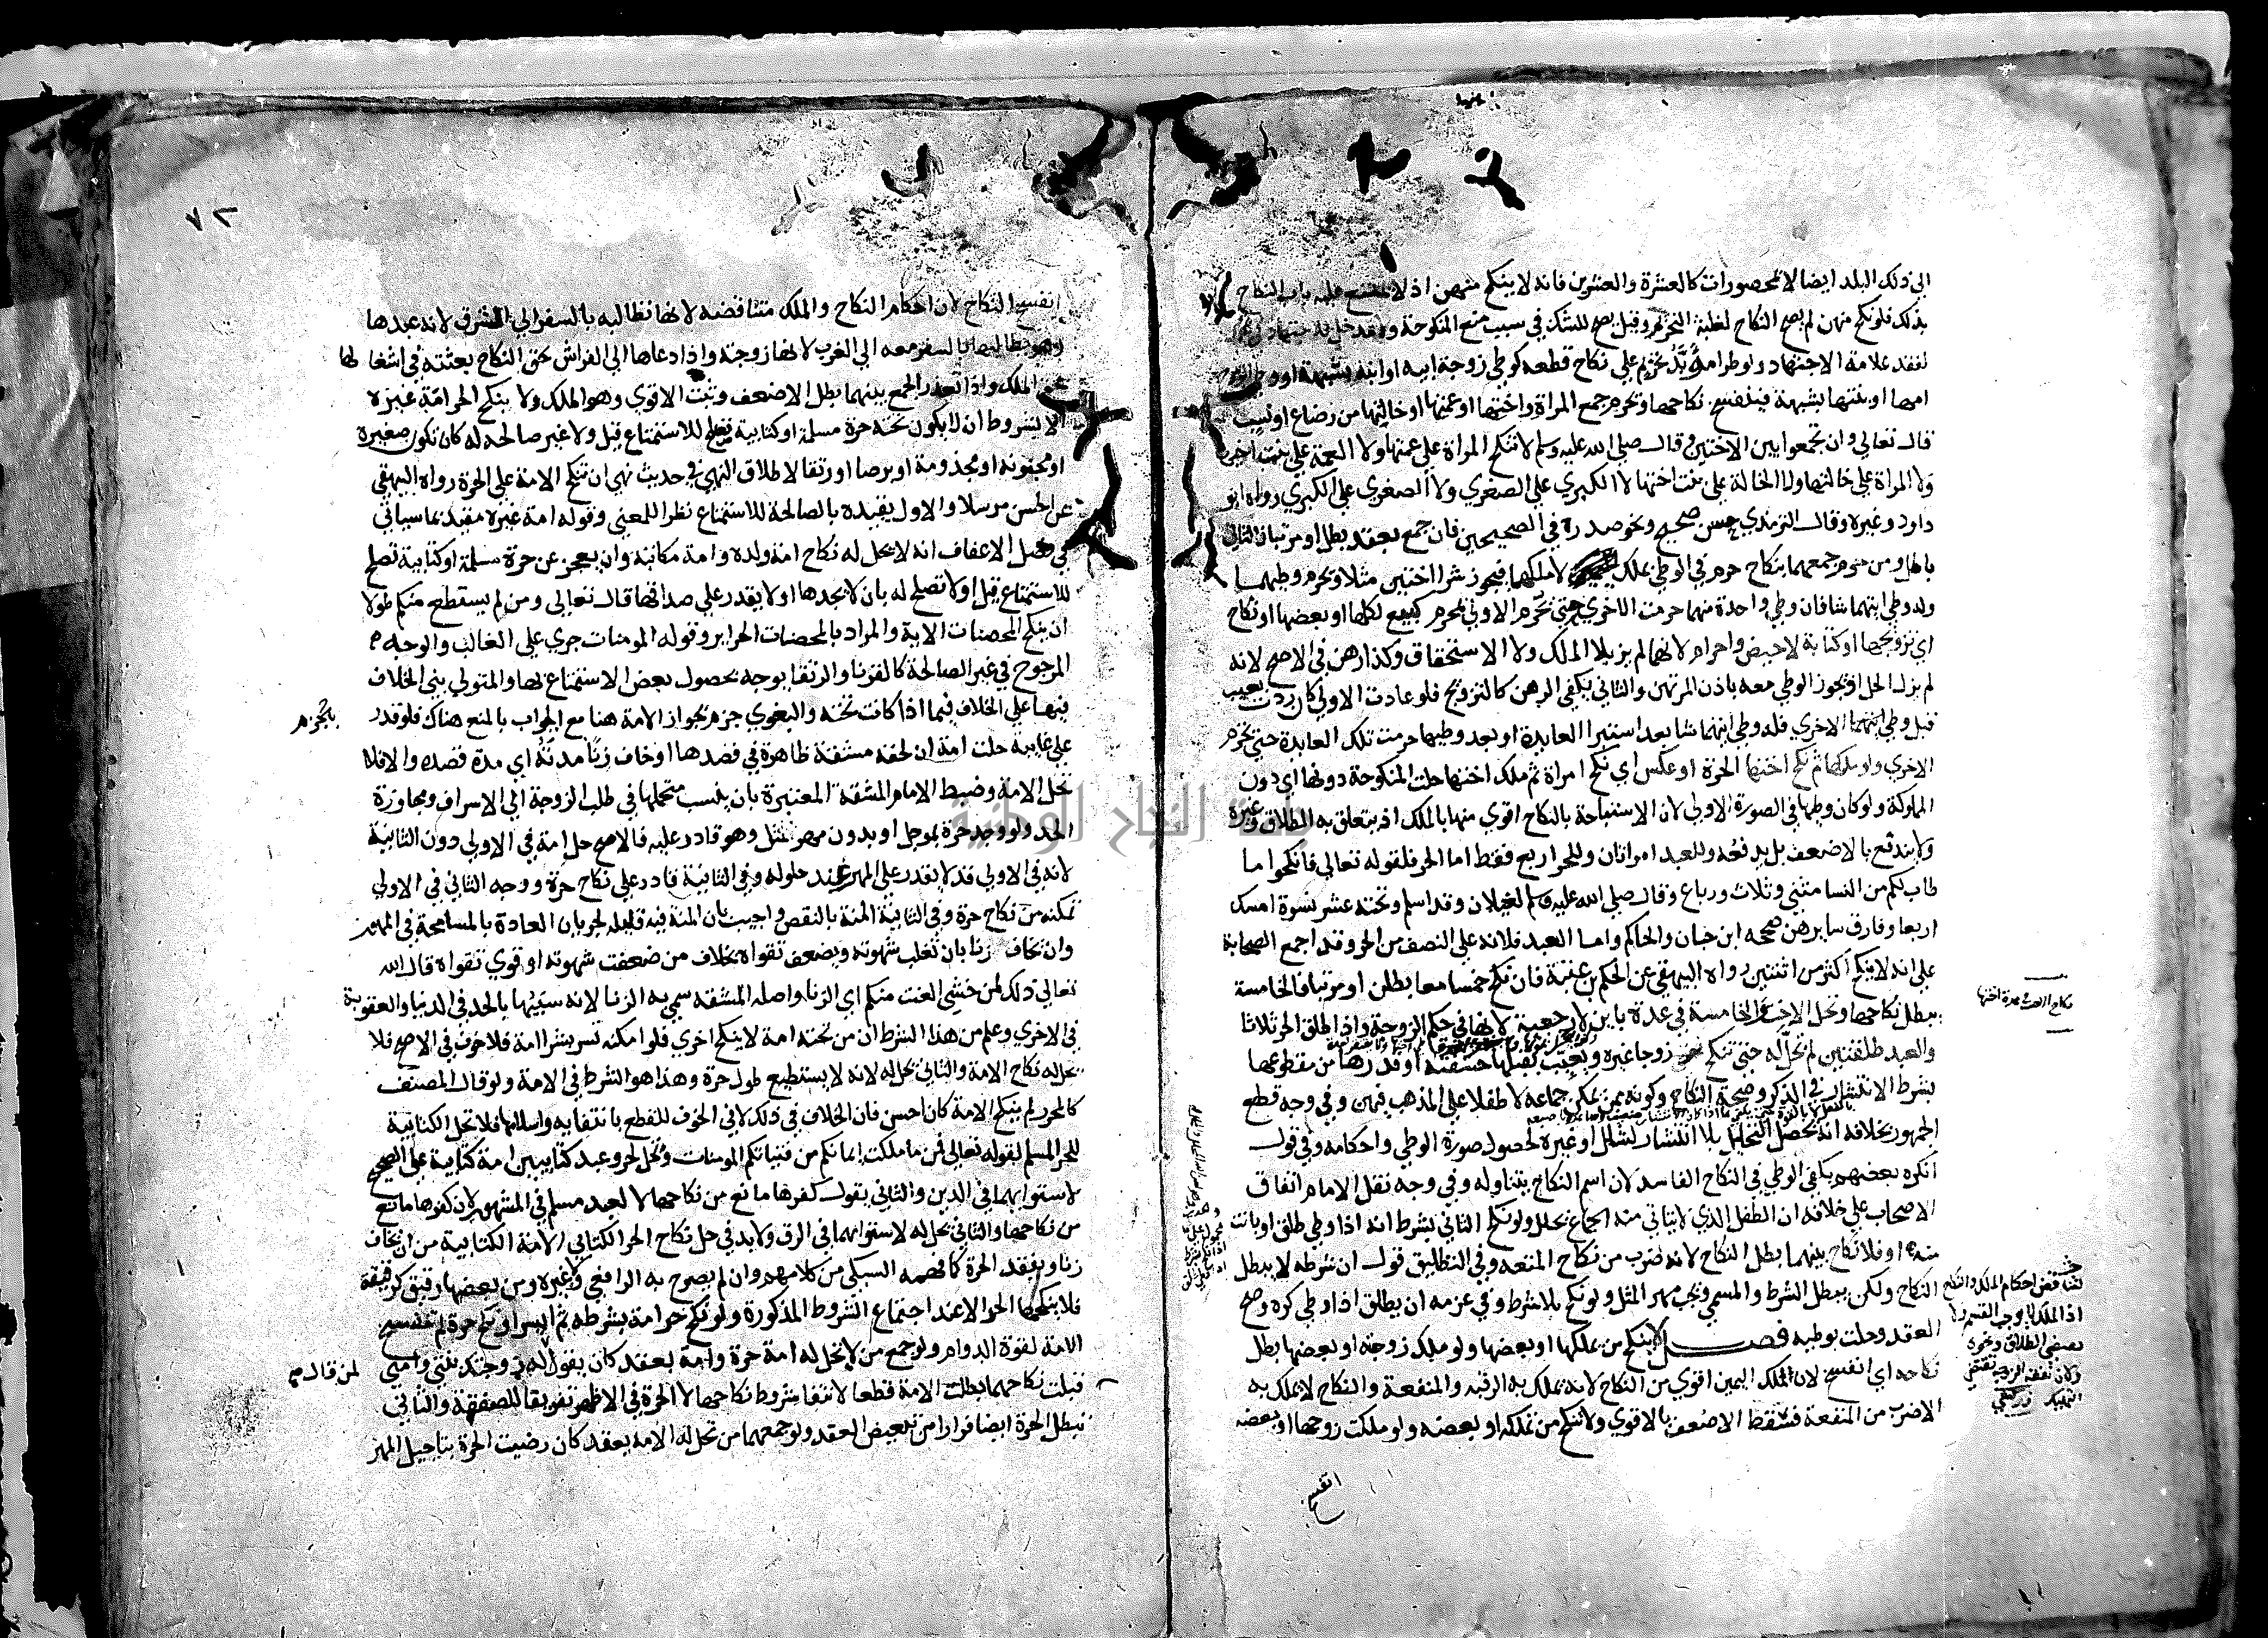 الي ذلك البلد ايضا لا لمحصورات كالعشرة والعشرين فانه لا ينكح منهن اذ لا عليه باب النكاح
بذلك فلو نكح منهن لم يصح النكاح لغلبة التحريم وقيل يصح للشك في سبب منع المنكوحة
لفقد علامة الاجتهاد ولو طرا مؤبد تحريم علي نكاح قطعه كوطي زوجة ابيه او ابنه بشبهة او وطي الزوج
امها او بنتها بشبهة فينفسخ نكاحها ويحرم جمع المراة واختها او عمتها او خالتها من رضاع او نسب
قال تعالي وان تجمعوا بين الاختين وقال صلي الله عليه وسلم لا تنكح المراة علي عمتها ولا العمة علي بنت اخيها
ولا المراة علي خالتها ولا الخالة علي بنت اختها لا الكبري علي الصغري ولا الصغري علي الكبري رواه ابو
داود وغيره وقال الترمذي حسن صحيح ونحو صدره في الصحيحين فان جمع بعقد بطل او مرتبا فالثاني
باطل ومن حرم جمعهما بنكاح حرم في الوطي بملك لا ملكهما فيجوز شرا اختين مثلا ويحرم وطيهما
وله وطي ايتهما شا فان وطي واحدة منهما حرمت الاخري حتي تحرم الاولي بمحرم كبيع لكلها او بعضها او نكاح
اي تزويجها او كتابة لا حيض واحرام لانهما لم يزيلا الملك ولا الاستحقاق وكذا رهن في الاصح لانه
لم يزل الحل اذ يجوز الوطي معه باذن المرتهن والثاني يكفي الرهن كالتزويج فلو عادت الاولي كان ردت بعيب
قبل وطي ايتهما الاخري فله وطي ايتهما شا بعد استبرا العايدة او بعد وطيها حرمت تلك العايدة حتي تحرم
الاخري ولو ملكها ثم نكح اختها الحرة او عكس اي نكح امراة ثم ملك اختها حلت المنكوحة دونها اي دون
المملوكة ولو كان وطيها في الصورة الاولي لان الاستباحة بالنكاح اقوي منها بالملك اذ يتعلق به الطلاق وغيره
ولا يندفع بالاضعف بل يدفعه وللعبد امراتان وللحر اربع فقط اما الحر فلقوله تعالي فانكحوا ما
طاب لكم من النسا مثني وثلاث ورباع وقال صلي الله عليه وسلم لغيلان وقد اسلم وتحته عشر نسوة امسك
اربعا وفارق سايرهن صححه ابن حبان والحاكم واما العبد فلانه علي النصف من الحر وقد اجمع الصحابة
علي انه لا ينكح اكثر من اثنتين رواه البيهقي عن الحكم بن عتبة فان نكح خمسا معا بطلن او مرتبا فالخامسة
يبطل نكاحها وتحل الاخت والخامسة في عدة باين لا رجعية لانها في حكم الزوجة واذا طلق الحر ثلاثا
والعبد طلقتين لم تحل له حتي تنكح زوجا غيره وتغيب بقبلها حشفته او قدرها من مقطوعها
بشرط الانتشار في الذكر وصحة النكاح وكونه ممن يمكن جماعه لا طفلا علي المذهب فيهن وفي وجه قطع
الجمهور بخلافه انه يحصل التحليل بلا انتشار لشلل او غيره لحصول صورة الوطي واحكامه وفي قول
انكره بعضهم يكفي الوطي في النكاح الفاسد لان اسم النكاح يتناوله وفي وجه نقل الامام اتفاق
الاصحاب علي خلافه ان الطفل الذي لا يتاتي منه الجماع يحلل ولو نكح الثاني بشرط انه اذا وطي طلق او بانت
منه او فلا نكاح بينهما بطل النكاح لانه ضرب من نكاح المتعه وفي التطليق قول ان شرطه لا يبطل
النكاح ولكن يبطل الشرط والمسمي ويجب مهر المثل ولو نكح بلا شرط وفي عزمه ان يطلق اذا وطي كره وصح
العقد وحلت بوطيه فصل لا ينكح من يملكها او بعضها ولو ملك زوجته او بعضها بطل
نكاحه اي انفسخ لان الملك اليمين اقوي من النكاح لانه يملك به الرقبه والمنفعة والنكاح لا يملك به
الاضرب من المنفعة فسقط الاضعف بالاقوي ولا تنكح من تملكه او بعضه ولو ملكت زوجها او بعضه
انفسخ
نكاح الاخت عدة اختها
لتناقض احكام الملك والنكاح
اذ الملك لا يوجب القسم ولا
يقتضي الطلاق ونحوه
ولان نفقة الزوجة تقتضي
التمليك زركشي
٧٢
انفسخ النكاح لان احكام النكاح والملك متناقضه لانها تطالبه بالسفر الي الشرق لانه عبدها
وهو يطالبها بالسفر معه الي الغرب لانها زوجته واذا دعاها الي الفراش بحق النكاح بعثته في اشغالها
بحق الملك واذا تعذر الجمع بينهما بطل الاضعف وثبت الاقوي وهو الملك ولا ينكح الحر امة غيره
الا بشروط ان لا يكون تحته حرة مسلمة او كتابية تصلح للاستمتاع قيل ولا غير صالحه له كان تكون صغيرة
او مجنونه او مجذومة او برصا او رتقا لاطلاق النهي في حديث نهي ان تنكح الامة علي الحرة رواه البيهقي
عن الحسن مرسلا والاول يقيده بالصالحة للاستمتاع نظرا للمعني وقوله امة غيره مقيد بما سياتي
في فصل الاعفاف انه لا يحل له نكاح امة ولده وامة مكاتبه وان يعجز عن حرة مسلمة او كتابية تصلح
للاستمتاع قيل او لا تصلح له بان لا يجدها او لا يقدر علي صداقها قال تعالي ومن لم يستطع منكم طولا
ان ينكح المحصنات الاية والمراد بالمحصنات الحراير وقوله المومنات جري علي الغالب والوجه
المرجوح في غير الصالحة كالقرنا والرتقا يوجه بحصول بعض الاستمتاع بها والمتولي بني الخلاف
فيها علي الخلاف فيما اذا كانت تحته والبغوي جزم بجواز الامة هنا مع الجواب بالمنع هناك فلو قدر
علي غايبة حلت امة ان لحقه مشقة ظاهرة في قصدها او خاف زنا مدته اي مدة قصده والا فلا
تحل الامة وضبط الامام المشقة المعتبرة بان ينسب متحملها في طلب الزوجة الي الاسراف ومجاوزة
الحد ولو وجد حرة بموجل او بدون مهر مثل وهو قادر عليه فالاصح حل امة في الاولي دون الثانية
لانه في الاولي قد لا يقدر علي المهر عند حلوله وفي الثانية قادر علي نكاح حرة ووجه الثاني في الاولي
تمكنه من نكاح حرة وفي الثانية المنة بالنقص واجيب بان المنة فيه قليله لجريان العادة بالمسامحة في المهر
وان يخاف زنا بان تغلب شهوته ويضعف تقواه بخلاف من ضعفت شهوته او قوي تقواه قال الله
تعالي ذلك لمن خشي العنت منكم اي الزنا واصله المشقه سمي به الزنا لانه سببها بالحد في الدنيا والعقوبة
في الاخري وعلم من هذا الشرط ان من تحته امة لا ينكح اخري فلو امكنه تسر بشرا امة فلا خوف في الاصح فلا
يحل له نكاح الامة والثاني يحل له لانه لا يستطيع طول حرة وهذا هو الشرط في الامة ولو قال المصنف
كالمحرر لم ينكح الامة كان احسن فان الخلاف في ذلك لا في الخوف للقطع بانتفايه واسلامها فلا تحل الكتابية
للحر المسلم لقوله تعالي فمن ما ملكت ايمانكم من فتياتكم المومنات وتحل لحر وعبد كتابيين امة كتابية علي الصحيح
لاستوايهما في الدين والثاني يقول كفرها مانع من نكاحها لا لعبد مسلم في المشهور لان كفرها مانع
من نكاحها والثاني يحل له لاستوايهما في الرق ولا بد في حل نكاح الحر الكتابي الامة الكتابية من ان يخاف
زنا ويفقد الحرة كما فهمه السبكي من كلامهم وان لم يصرح به الرافعي ولا غيره ومن بعضها رقيق كرقيقة
فلا ينكحها الحر الا عند اجتماع الشروط المذكورة ولو نكح حر امة بشرطه ثم ايسر او نكح حرة لم تنفسخ
الامة لقوة الدوام ولو جمع من لا تحل له امة حرة وامة بعقد كان يقول له زوجتك بنتي وامتي
قبلت نكاحهما بطلت الامة قطعا لانتفا شروط نكاحها لا الحرة في الاظهر تفريقا للصفقة والثاني
تبطل الحرة ايضا فرارا من تبعيض العقد ولو جمعهما من تحل له الامة بعقد كان رضيت الحرة بتاجيل المهر